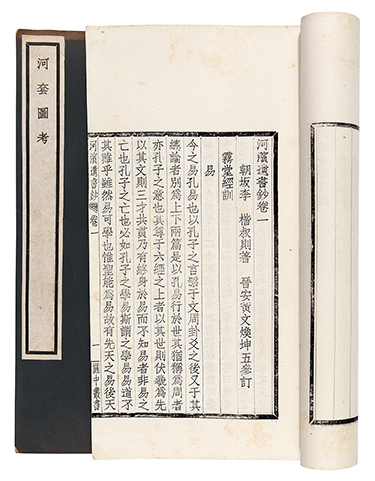 河套圖考
河濱遺書鈔卷一
朝坂李 楷叔則著 晉安黃文煥坤五參訂
霧堂經訓
易
今之易孔易也以孔子之言隸于文周卦爻之後又于其
總論者別爲上下兩篇是以孔易行於世其猶稱爲周者
亦孔子之意也其尊于六經之上者以其世則伏羲爲先
以其文則三才共貫乃有終身於易而不知易者非易之
亡也孔子之亡也必如孔子之學易斯謂之學易易道不
其難乎雖然易非可學也惟聖能爲易故有先天之易後天
河濱遺書鈔 卷一 一 關中叢書